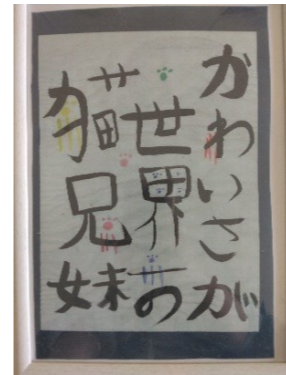 かわいさが
世界一の
猫兄妹